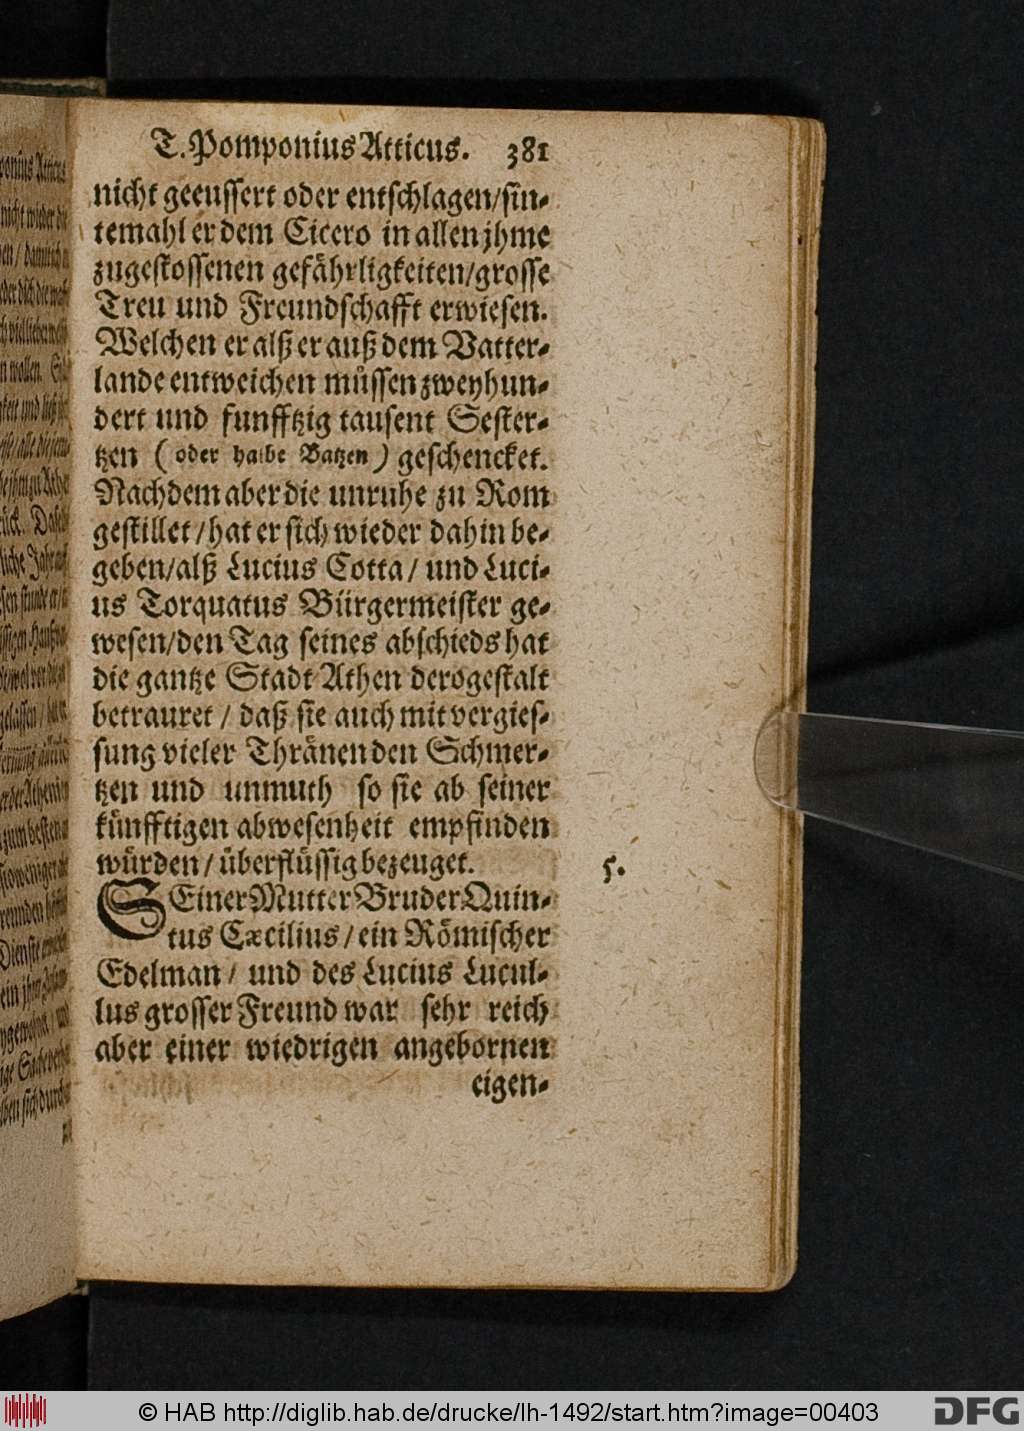 T. Pomponius Atticus. 381
nicht geeussert oder entschlagen/sin-
temahl er dem Cicero in allen jhme
zugestossenen gefährligkeiten/grosse
Treu und Freundschafft erwiesen.
Welchen er alß er auß dem Vatter-
lande entweichen müssen zweyhun-
dert und funfftzig tausent Sester-
tzen (oder halbe Batzen) geschencket.
Nachdem aber die unruhe zu Rom
gestillet/hat er sich wieder dahin be-
geben/alß Lucius Cotta/ und Luci-
us Torquatus Bürgermeister ge-
wesen/den Tag seines abschieds hat
die gantze Stadt Athen derogestalt
betrauret/ daß sie auch mit vergies-
sung vieler Thränen den Schmer-
tzen und unmuth so sie ab seiner
künfftigen abwesenheit empfinden
würden/überflüssig bezeuget.
5.
SEiner Mutter Bruder Quin-
tus Cæcilius/ein Römischer
Edelman/ und des Lucius Lucul-
lus grosser Freund war sehr reich
aber einer wiedrigen angebornen
eigen-
© HAB http://diglib.hab.de/drucke/lh-1492/start.htm?image=00403
DFG